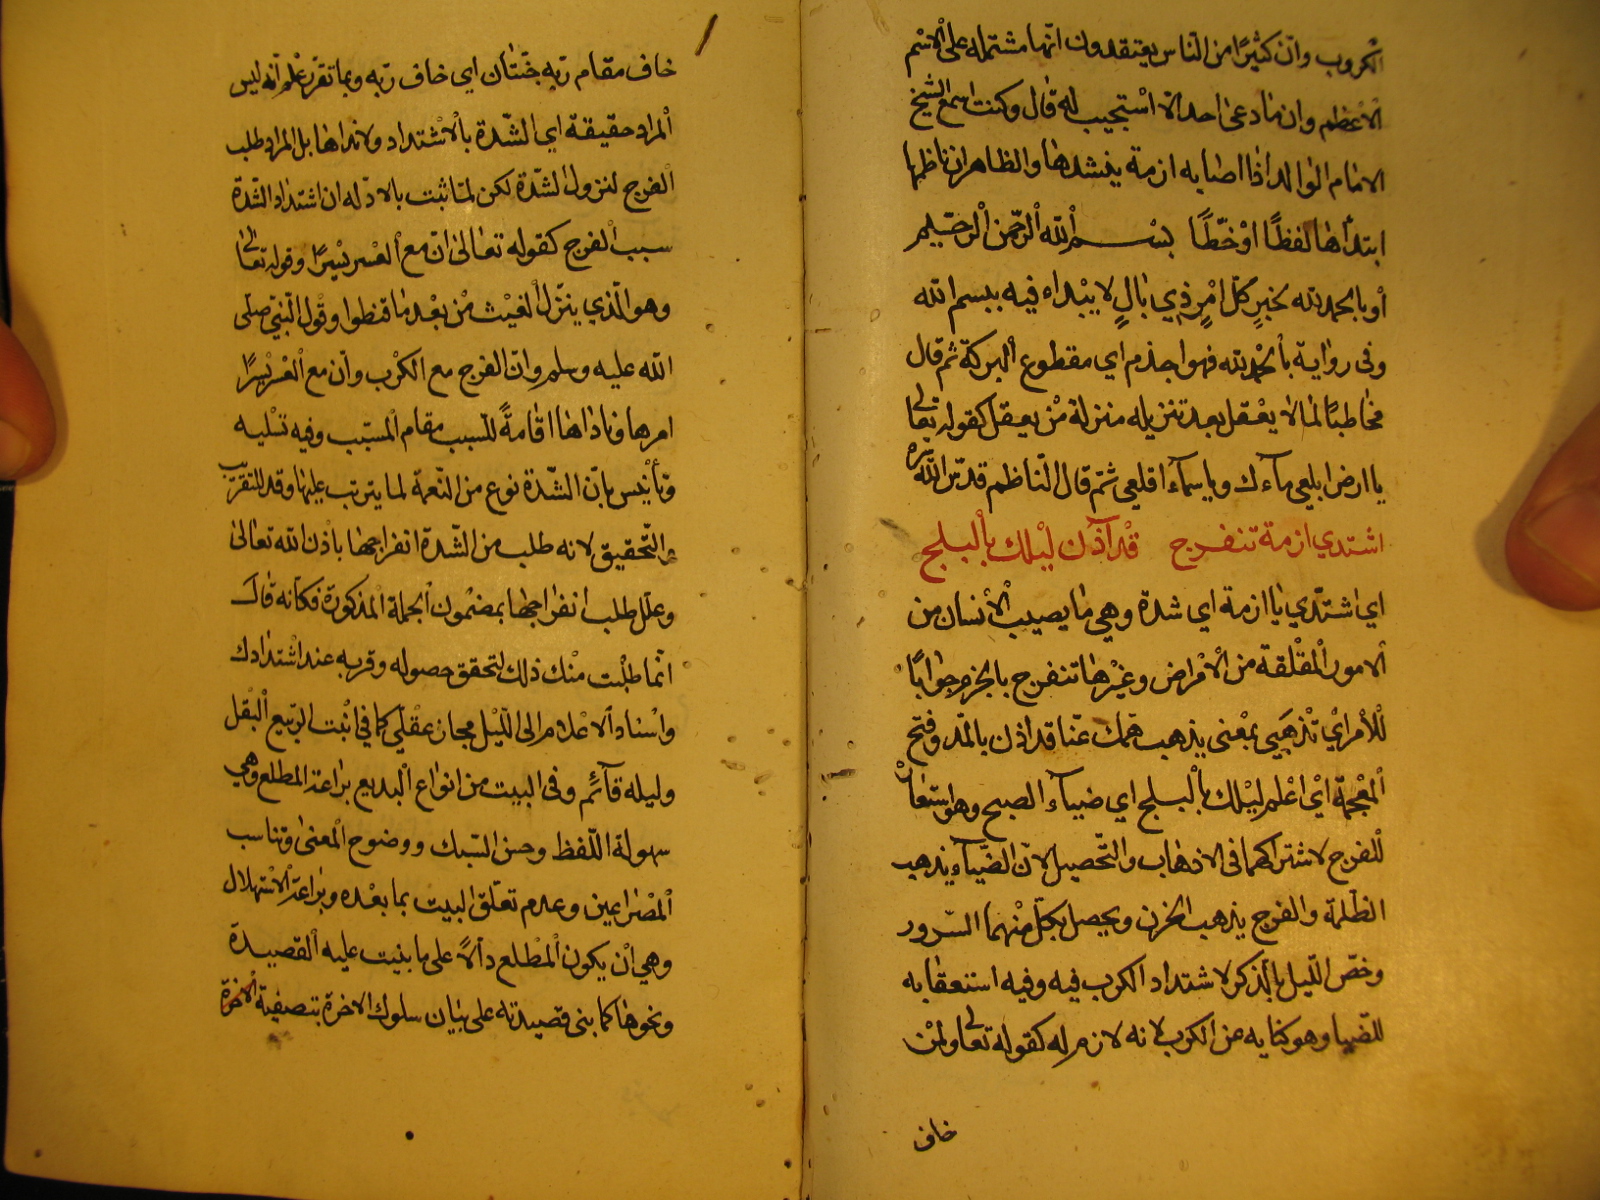 الكروب وان كثيرا من الناس يعتقدون انها مشتمله على الاسم
الاعظم وان ما دعى احد الا استجيب له قال وكنت اسمع الشيخ
الامام الوالد اذا اصابه ازمة ينشدها والظاهر ان ناظمها
ابتدأها لفظًا اوْ خطًّا بسم الله الرحمن الرحيم
أو بالحمد لله لخبرِ كلّ امْرٍ ذِي بَالٍ لا يبْداء فيه ببسم الله
وفى رواية بالحمد لله فهو اجذم اي مقطوع البركة ثم قال
مخاطبًا لما لا يعْقل بعد تنزيله منزلة منْ يعقل كقوله تعالى
يا ارض ابلعي ماءك ويا سماء اقلعي ثم قال الناظم قدّس الله سره
اشتدي ازمة تنفرج قدْ آذن ليْلك بالبلج
اي اشتدّي يا ازمة اي شدة وهي ما يصيب الأنسان من
الامور المقْلقة من الامْراض وغيْرها تنفرج بالجزم جوابًا
للْأمر أيْ تذْهَبِي بمعْنى يذهب همّك عنّا قد اذن بالمدّ وفتح
المعْجمة ايْ اعْلم ليْلك بالْبلج اي ضياء الصبح وهو استعارة
للْفرج لاشتراكهما فى الاذهاب والتّحصيل لانّ الضّياء يذهب
الظّلمة والفرج يذهب الحزن ويحصل بكلّ منْهما السّرور
وخصّ اللّيل بالذكر لاشتداد الكرب فيه وفيه استعقابه
للضّيا وهو كنايه عن الكرب لانه لازم له كقوله تعالى ولمنْ
خاف
خاف مقام ربّه جنّتان اي خاف ربّه وبما تقرّر علْم أنه ليس
المراد حقيقة اي الشّدة بالْاشْتداد ولا نداها بل المراد طلب
الفرج لنزول الشدّة لكن لمّا ثبت بالادله ان اشتداد الشدّة
سبب الفرج كقوله تعالى انّ مع الْعسر يسْرًا وقوله تعالى
وهو الّذي ينزّل الْغيْث منْ بعْد ما قنطوا وقوْل النّبيّ صلى
الله عليه وسلم وانّ الفرج مع الكرْب وأن مع الْعسْر يسْرًا
امرها وناداها اقامةً للسّبب مقام المسّبب وفيه تسْليه
وتأنيس بانّ الشّدّة نوع من النّعمة لما يترتب عليها وقد للتقريب
والتّحقيق لانه طلب من الشّدة انفراجها باذن الله تعالى
وعلّل طلب انفراجها بمضْمون الجملة المذكورة فكأنه قال
انّما طلبْت منْك ذلك لتحقق حصوله وقربه عند اشْتدادك
واسْناد الاعْلام الى اللّيْل مجاز عقْليّ كما في انْبت الربيع البقْل
وليله قآئم وفى البيت من انواع البديع براعة المطلع وهي
سهولة اللّفظ وحسن السّبك ووضوح المعنى وتناسب
المصْراعين وعدم تعلّق البيت بما بعْده وبراعة الاسْتهلال
وهي أنْ يكون المطْلع دالاً على ما بنيت عليه القصيدة
ونحوها كما بنى قصيدته على بيان سلوك الاخرة بتصفية الاخرة